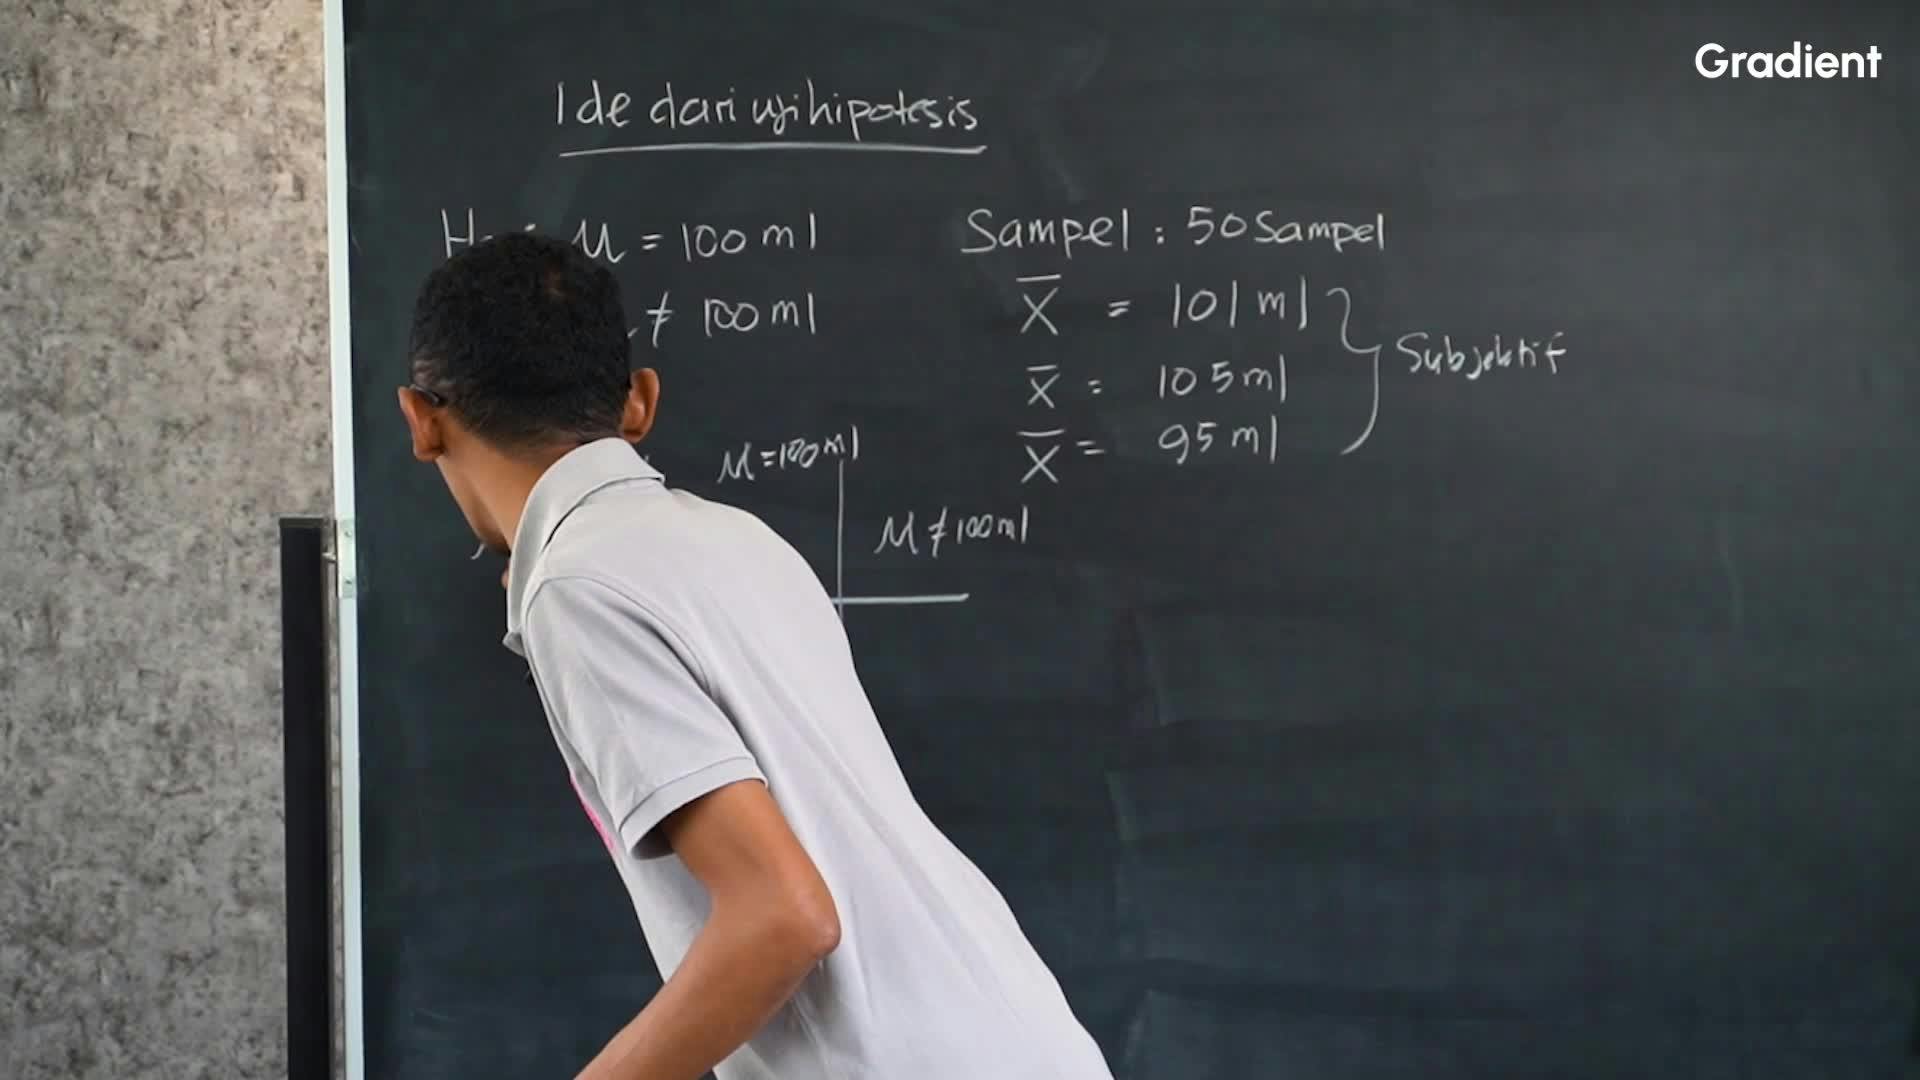 Gradient
Ide dari uji hipotesis
μ = 100 ml
≠ 100 ml
Sampel : 50 Sampel
X̅ = 101 ml
X̅ = 105 ml
X̅ = 95 ml
Subjektif
μ = 100 ml
μ ≠ 100 ml